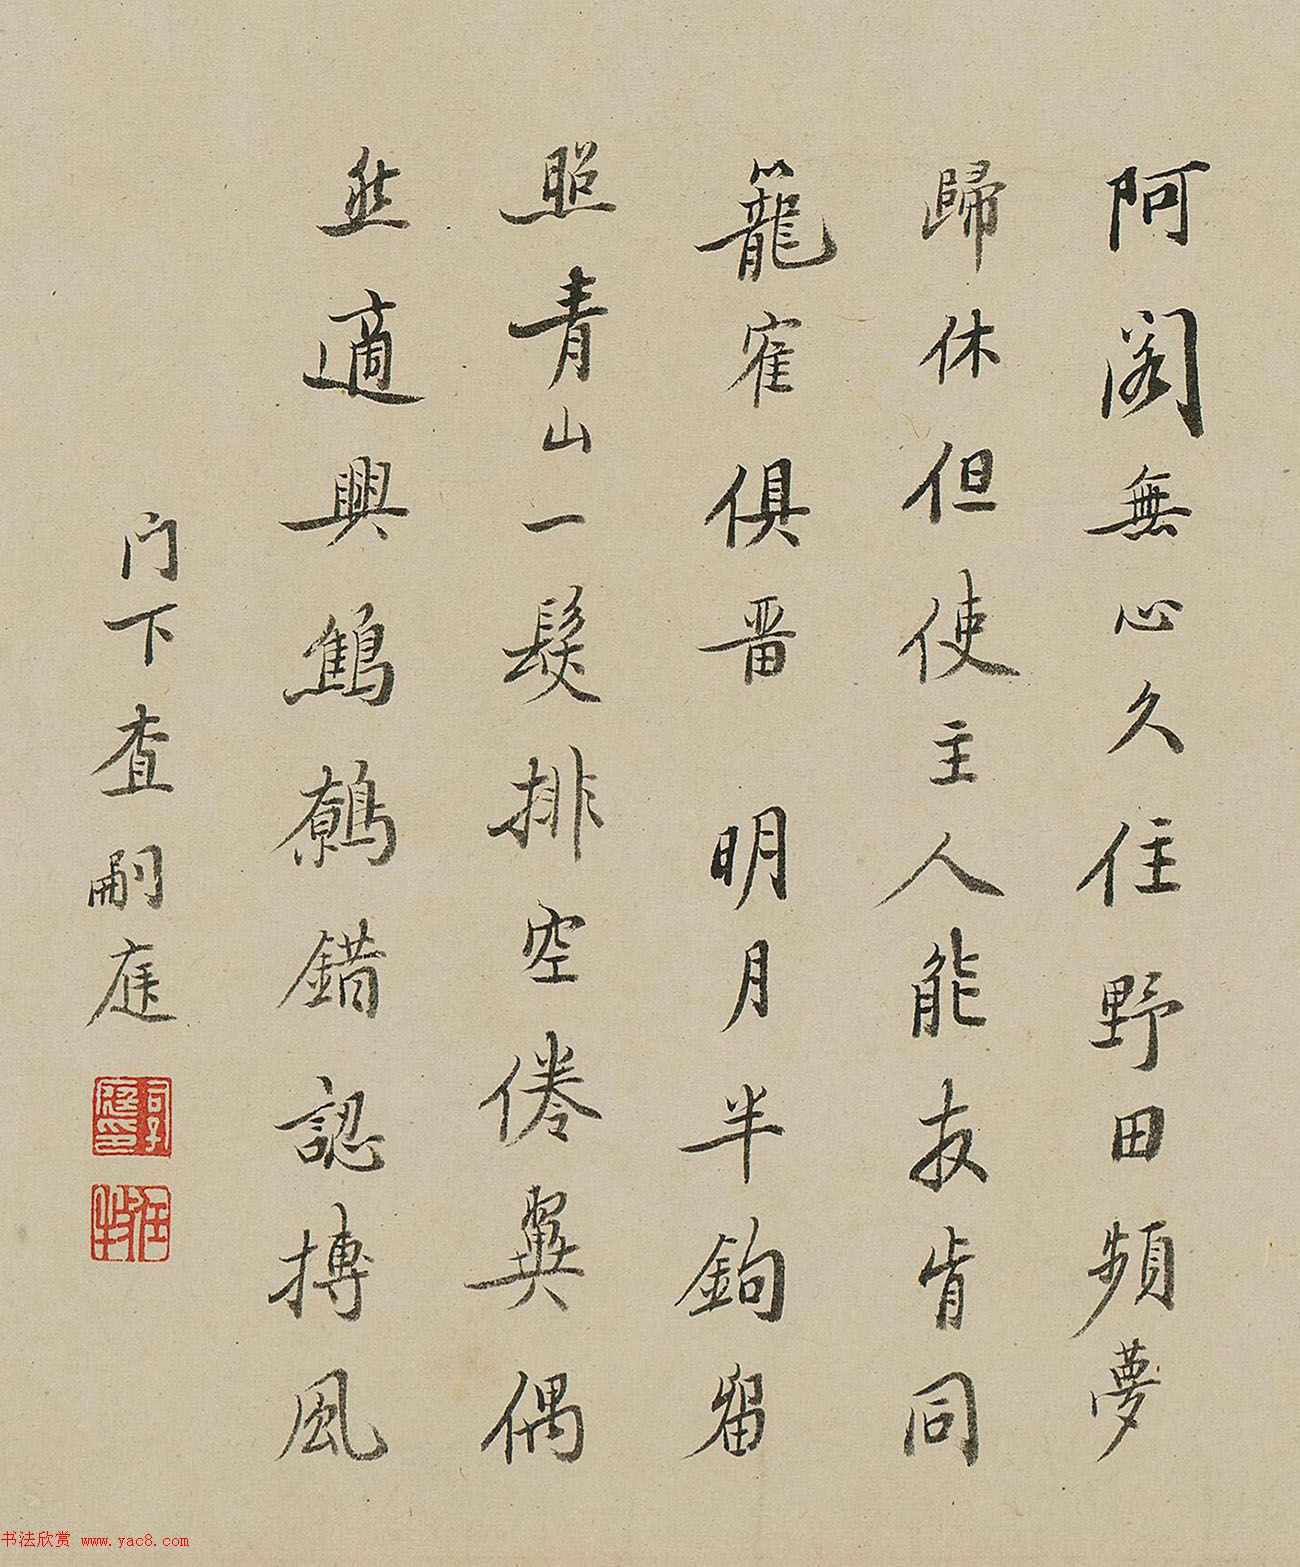 阿閣無心久住野田頻夢
歸休但使主人能友肯同
籠寉俱畱 明月半鉤留
照青山一髮排空倦翼偶
然適興鷦鷯錯認搏風
门下查嗣庭
孠庭印
书法欣赏 www.yac8.com